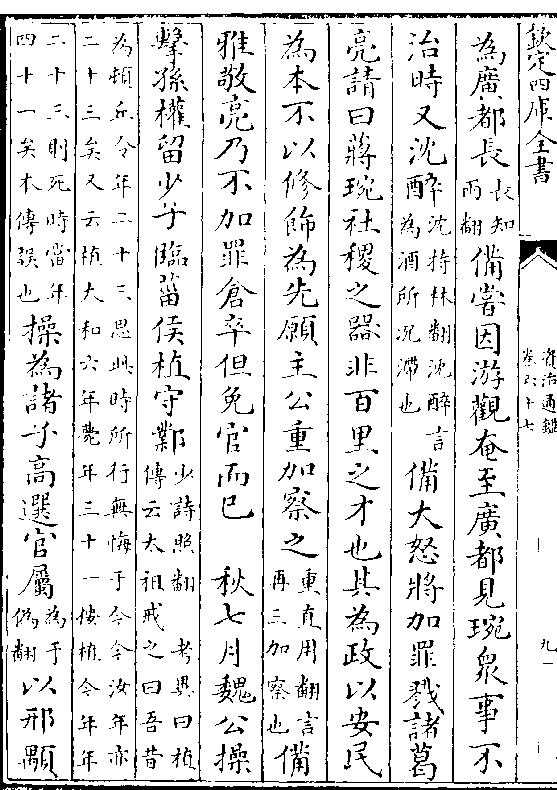 欽定四庫全書
資治通鑑
卷六十七
九
為廣都長長知兩翻備嘗因游觀奄至廣都見琬衆事不
治時又沈醉沈持林翻沈醉言為酒所沉滯也備大怒將加罪戮諸葛
亮請曰蔣琬社稷之器非百里之才也其為政以安民
為本不以修飾為先願主公重加察之重直用翻言再三加察也備
雅敬亮乃不加罪倉卒但免官而已 秋七月魏公操
擊孫權留少子臨菑侯植守鄴少詩照翻 考異曰植傳云太祖戒之曰吾昔
為頓丘令年二十三思此時所行無悔于今今汝年亦二十三矣又云植大和六年薨年三十一按植今年年
二十三則死時當年四十一矣本傳誤也操為諸子高選官屬為于偽翻以邢顒